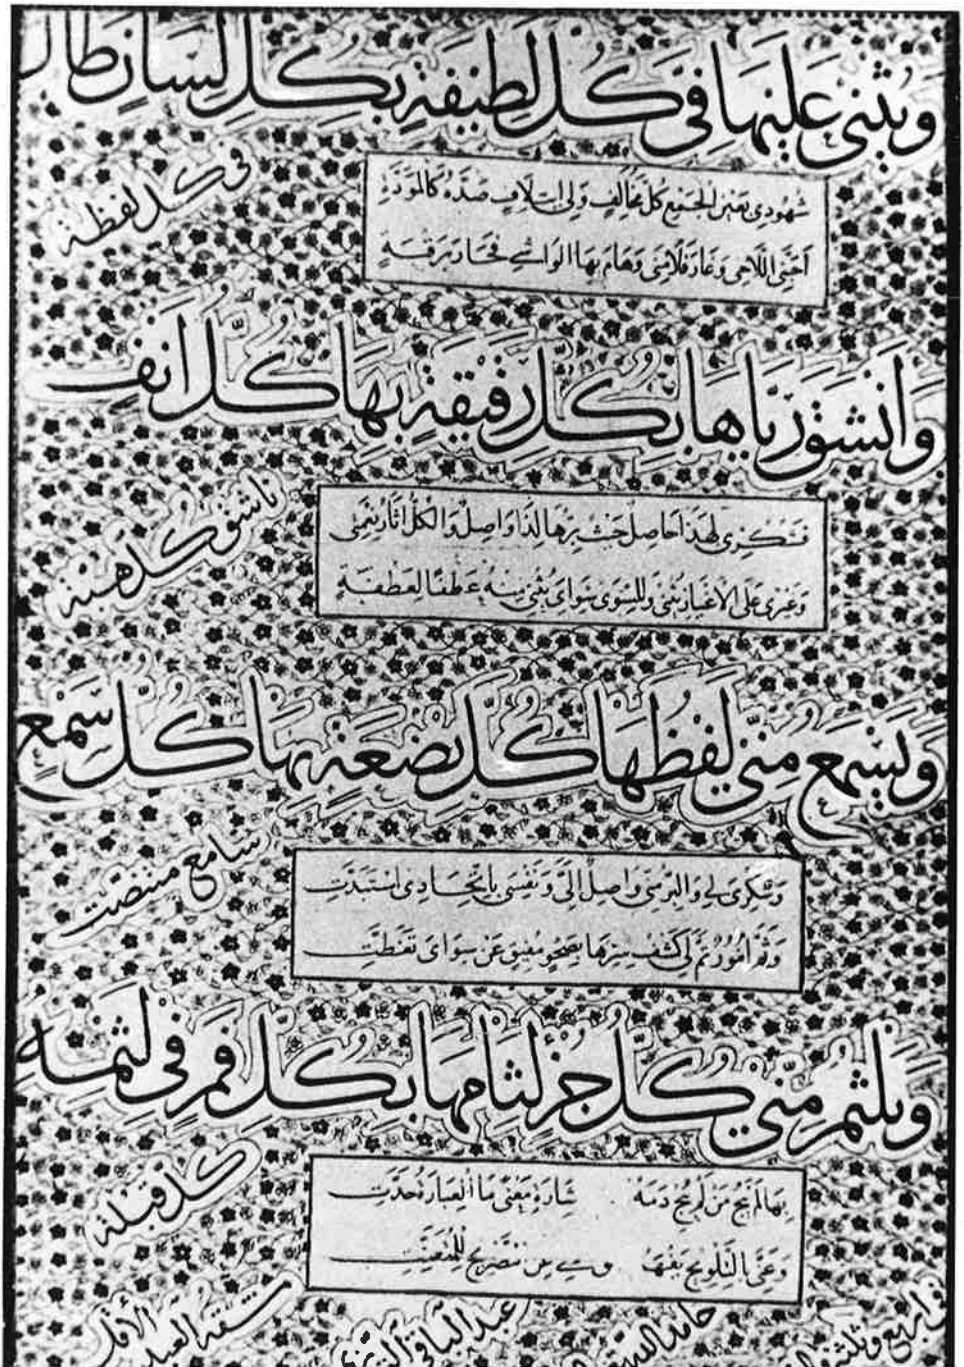 وَيُثْنِي عَلَيْهَا فِيَّ كُلُّ لَطِيفَةٍ بِكُلِّ لِسَانٍ طَالَ
فِي كُلِّ لَفْظَةٍ
شُهُودِي بِعَيْنِ الْجَمْعِ كُلَّ مُخَالِفٍ وَلِيَّ ائْتِلَافٍ صَدُّهُ كَالْمَوَدَّةِ
أَحَبَّنِي اللَّاحِي وَغَارَ فَلَامَنِي وَهَامَ بِهَا الْوَاشِي فَجَارَ بِرِقْبَةٍ
وَأَنْشَقُ رَيَّاهَا بِكُلِّ رَقِيقَةٍ بِهَا كُلُّ أَنْفٍ
نَاشِقٍ كُلَّ هَبَّةٍ
فَشُكْرِي لِهَذَا حَاصِلٌ حَيْثُ بِرُّهَا لِذَا وَاصِلٌ وَالْكُلُّ آثَارُ نِعْمَتِي
وَغَيْرِي عَلَى الْأَغْيَارِ يُثْنِي وَلِلسِّوَى سِوَايَ يُثَنِّي مِنْهُ عِطْفًا لِعَطْفَةٍ
وَيَسْمَعُ مِنِّي لَفْظَهَا كُلُّ بِضْعَةٍ بِهَا كُلُّ سَمْعٍ
سَامِعٍ مُتَنَصِّتِ
وَشُكْرِيَ لِي وَالْبِرُّ مِنِّي وَاصِلٌ إِلَيَّ وَنَفْسِي بِاتِّحَادِي اسْتَبَدَّتِ
وَثَمَّ أُمُورٌ تَمَّ لِي كَشْفُ سِتْرِهَا بِصَحْوٍ مُفِيقٍ عَنْ سِوَايَ تَغَطَّتِ
وَيَلْثِمُ مِنِّي كُلُّ جُزْءٍ لِثَامَهَا بِكُلِّ فَمٍ فِي لَثْمِهِ
كُلُّ قُبْلَةٍ
بِهَا لَمْ يَبُحْ مَنْ لَمْ يُبِحْ دَمَهُ شَارَةِ مَعْنًى مَا الْعِبَارَةُ حَدَّتِ
وَعَنِّيَ بِالتَّلْوِيحِ يَفْهَمُ
عبد الباقي